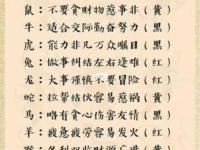 鼠：不要贪财物惹事非（黄）
牛：适合交际勤奋努力（黑）
虎：能力非凡万众瞩目（黑）
兔：做事纠结左右逢难（红）
龙：大事谨慎不要冒险（红）
蛇：拉帮结伙容易惹祸（黄）
马：略有贪心伤害友情（黑）
羊：疲惫疲劳容易发火（红）